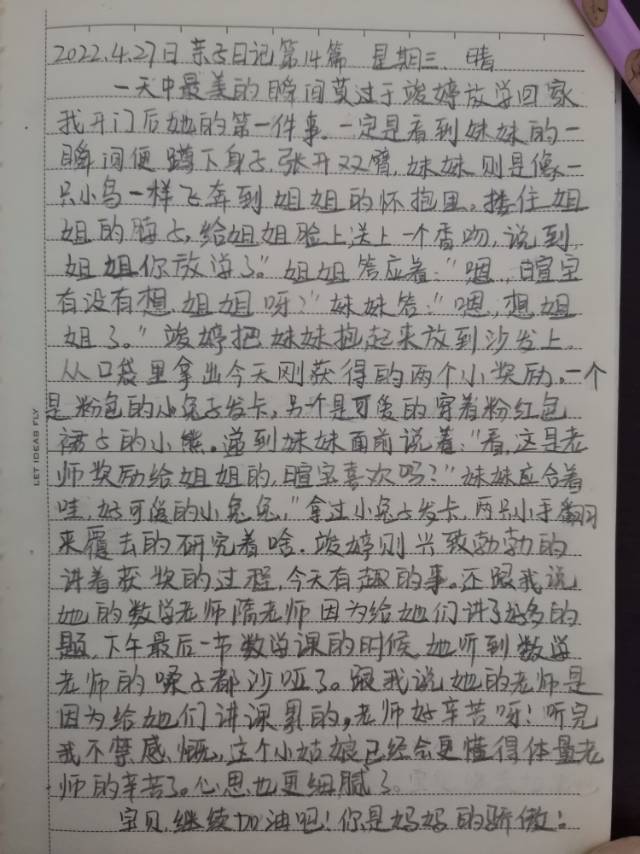 2022.4.27日亲子日记第14篇 星期三 晴
一天中最美的瞬间莫过于竣婷放学回家
我开门后她的第一件事.一定是看到妹妹的一
瞬间便蹲下身子,张开双臂,妹妹则是像一
只小鸟一样飞奔到姐姐的怀抱里,搂住姐
姐的脖子,给姐姐脸上送上一个香吻,说到
姐姐你放学了。"姐姐答应着:"嗯,暄宝
有没有想姐姐呀?"妹妹答:"嗯,想姐
姐了。"竣婷把妹妹抱起来放到沙发上,
从口袋里拿出今天刚获得的两个小奖励,一个
是粉色的小兔子发卡,另个是可爱的穿着粉红色
裙子的小熊。递到妹妹面前说着:"看,这是老
师奖励给姐姐的,暄宝喜欢吗?"妹妹应合着
哇,好可爱的小兔兔,"拿过小兔子发卡,两只小手翻
来覆去的研究着啥.竣婷则兴致勃勃的
讲着获奖的过程,今天有趣的事。还跟我说
她的数学老师隋老师因为给她们讲了好多的
题,下午最后一节数学课的时候,她听到数学
老师的嗓子都沙哑了。跟我说她的老师是
因为给她们讲课累的,老师好辛苦呀!听完
我不禁感慨,这个小姑娘已经会更懂得体量老
师的辛苦了。心思也更细腻了。
宝贝,继续加油吧!你是妈妈的骄傲!
LET IDEAS FLY